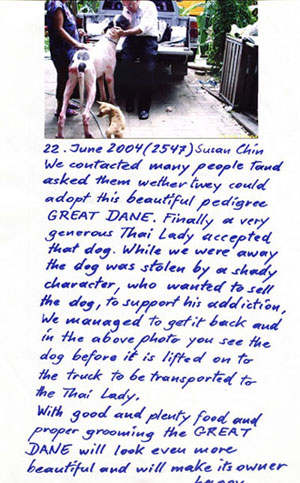 22. June 2004 (2547) Susan Chin
We contacted many people Tand
asked them wether twey could
adopt this beautiful pedigree
GREAT DANE. Finally a very
generous Thai Lady accepted
that dog. While we were away
the dog was stolen by a shady
character, who wanted to sell
the dog, to support his addiction,
We managed to get it back and
in the above photo you see the
dog before it is lifted on to
the truck to be transported to
the Thai Lady.
With good and plenty food and
proper grooming the GREAT
DANE will look even more
beautiful and will make its owner